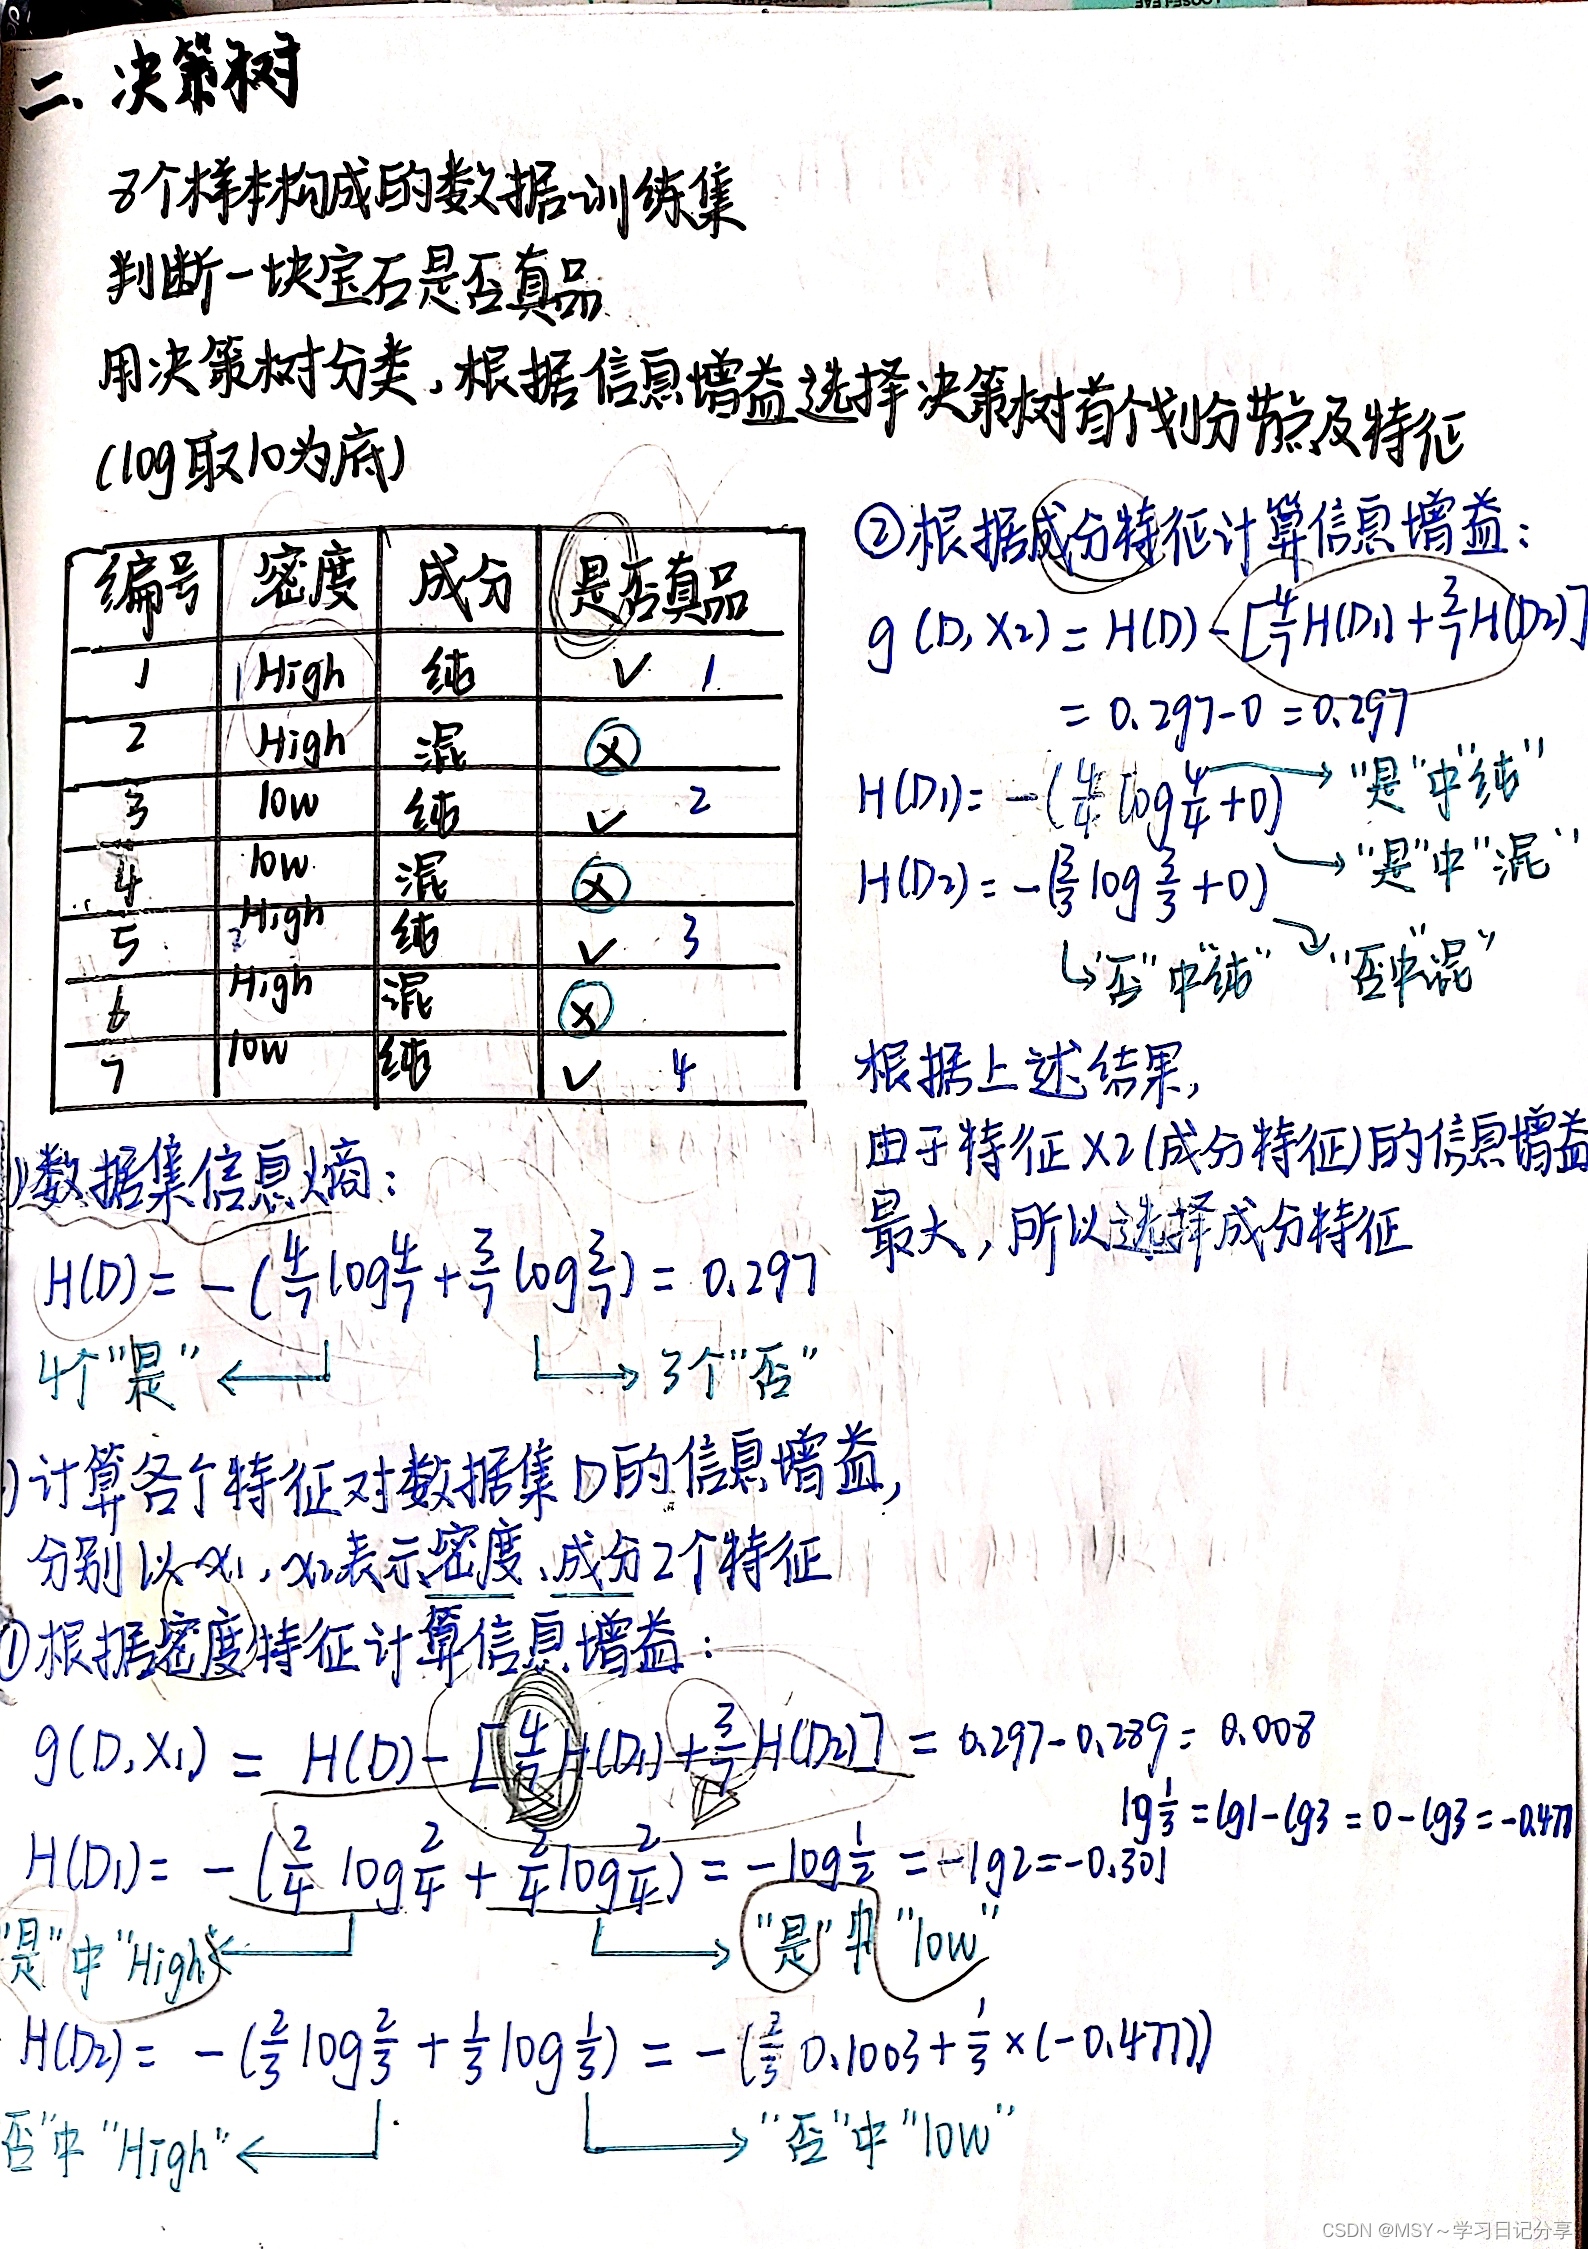 二、决策树
8个样本构成的数据训练集
判断一块宝石是否真品
用决策树分类,根据信息增益选择决策树首个划分节点及特征
(log取10为底)
编号 密度 成分 是否真品
1 1 High 纯 ✓ 1
2 High 混 ×
3 low 纯 ✓ 2
4 low 混 ×
5 2 High 纯 ✓ 3
6 High 混 ×
7 low 纯 ✓ 4
1)数据集信息熵:
H(D) = -(4/7 log 4/7 + 3/7 log 3/7) = 0.297
4个"是" ← → 3个"否"
)计算各个特征对数据集D的信息增益,
分别以x1,x2表示密度、成分2个特征
①根据密度特征计算信息增益:
g(D,X1) = H(D) - [4/7 H(D1) + 3/7 H(D2)] = 0.297-0.289 = 0.008
lg 1/3 = lg1-lg3 = 0-lg3 = -0.477
H(D1) = -(2/4 log 2/4 + 2/4 log 2/4) = -log 1/2 = -lg2 = -0.301
"是"中"High" ← → "是"中"low"
H(D2) = -(2/3 log 2/3 + 1/3 log 1/3) = -(2/3 0.1003 + 1/3 ×(-0.477))
否"中"High" ← → "否"中"low"
②根据成分特征计算信息增益:
g(D,X2) = H(D) - [4/7 H(D1) + 3/7 H(D2)]
= 0.297-0 = 0.297
H(D1) = -(4/4 log 4/4 + 0) → "是"中"纯"
→ "是"中"混"
H(D2) = -(3/3 log 3/3 + 0)
↳"否"中"纯" "否中"混"
根据上述结果,
由于特征X2(成分特征)的信息增益
最大,所以选择成分特征
CSDN @MSY~学习日记分享